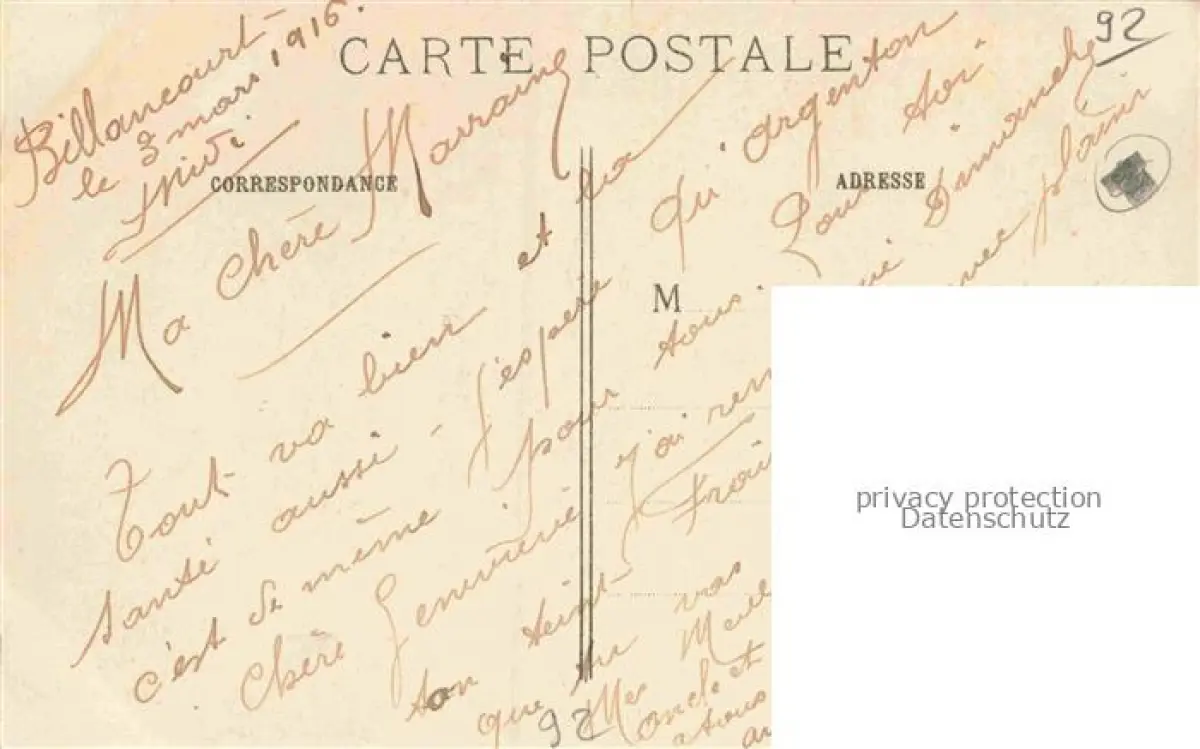 CARTE POSTALE
92
Billancourt
le 3 mars 1916.
Midi
CORRESPONDANCE
ADRESSE
M
Ma chère Marraine
Tout va bien et la
santé aussi - J'espère qu'argenton
c'est de même pour tous. Pour toi
chère Geneviève j'ai Dimanche
ton teint plaisir
que tu vas
Mes
oncle et
92
privacy protection
Datenschutz